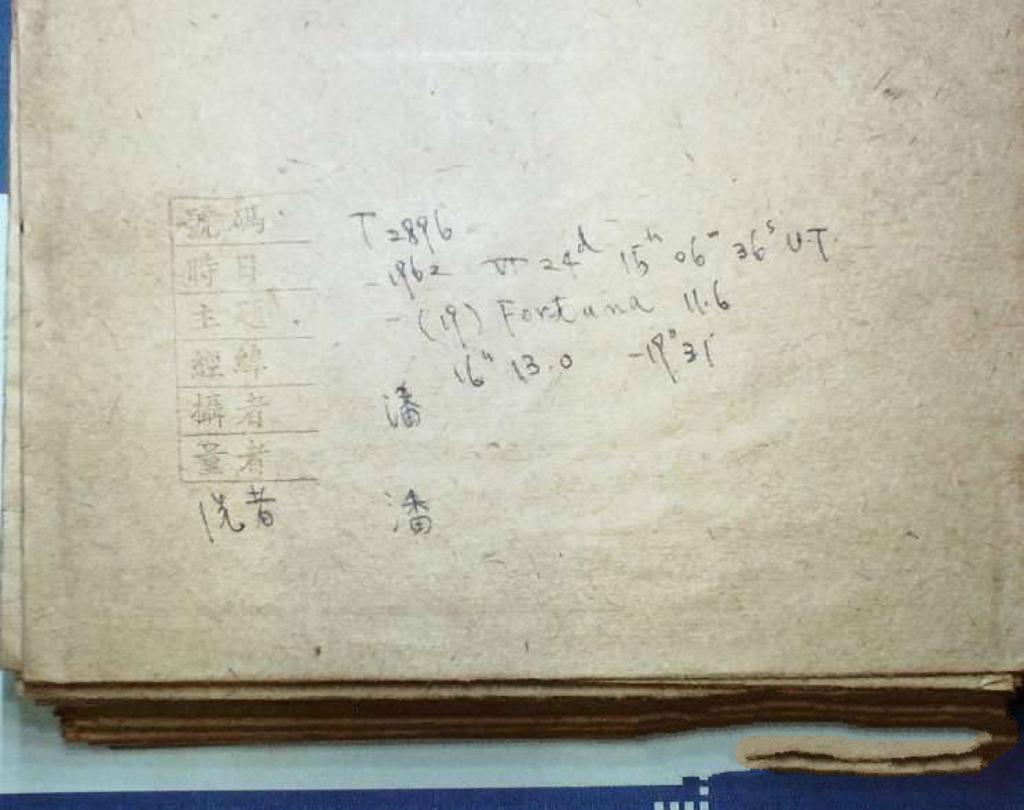 號碼 T 2896
時日 1962 VI 24d 15h 06m 36s U.T.
主題 (19) Fortuna 11.6
經緯 16h 13.0 -19°31'
攝者 潘
量者
洗者 潘